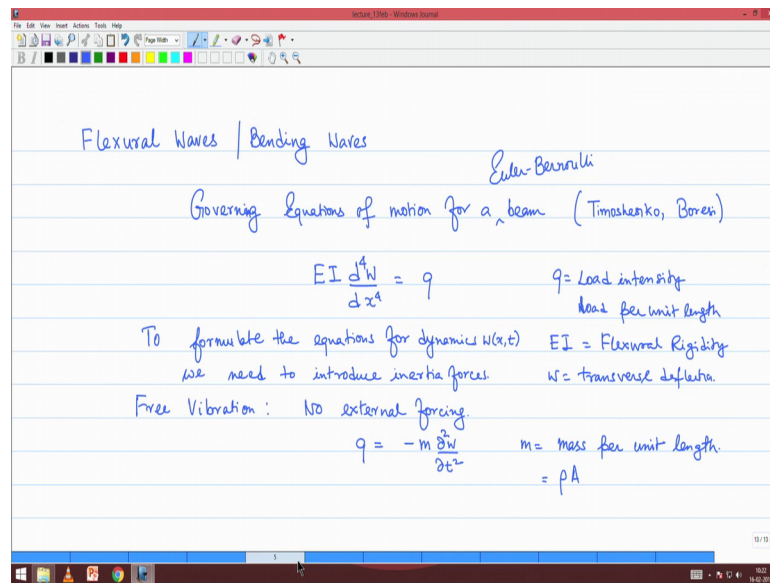 lecture_13feb - Windows Journal
File Edit View Insert Actions Tools Help
Page Width
B I
Flexural Waves | Bending Waves
Euler-Bernoulli
Governing Equations of motion for a ^ beam (Timoshenko, Boresi)
EI d⁴W/dx⁴ = q
q = Load intensity
load per unit length
To formulate the equations for dynamics w(x,t)
EI = Flexural Rigidity
we need to introduce inertia forces.
w = transverse deflection.
Free Vibration : No external forcing.
q = -m ∂²w/∂t²
m = mass per unit length.
= ρA
13 / 13
5
10:22